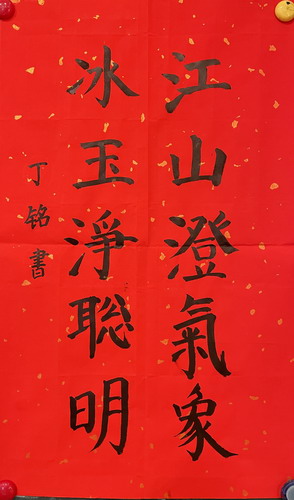 江山澄氣象
冰玉淨聰明
丁铭書